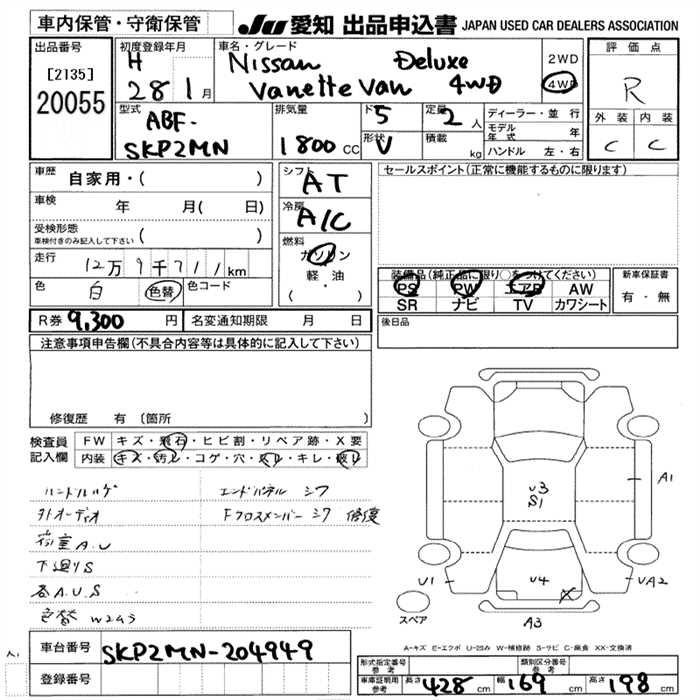 車内保管・守衛保管
JU 愛知 出品申込書 JAPAN USED CAR DEALERS ASSOCIATION
出品番号
[2135]
20055
初度登録年月
H
28 1月
車名・グレード
Nissan Deluxe
Vanette Van 4WD
2WD
4WD
評価点
R
外装 内装
C C
型式
ABF-
SKP2MN
排気量
1800 CC
ド 5
形状 V
定員 2 人
積載 kg
ディーラー・並行
モデル年式 年
ハンドル 左・右
車歴 自家用・( )
車検 年 月( 日)
受検形態
車検付きのみ記入して下さい ( )
走行 12万9千711km
色 白 色替 色コード
R券 9,300 円 名変通知期限 月 日
シフト
AT
冷房
A/C
燃料
ガソリン
軽・油
( ・ )
セールスポイント(正常に機能するものに限ります)
装備品(純正品に限り○をつけてください)
PS PW エアB AW
SR ナビ TV カワシート
新車保証書
有・無
後日品
注意事項申告欄(不具合内容等は具体的に記入して下さい)
修復歴 有 〔箇所
検査員
記入欄
FW キズ・飛石・ヒビ割・リペア跡・X要
内装 キズ・汚れ・コゲ・穴・スレ・キレ・破レ
ハンドルハゲ エンドパネル シワ
外オーディオ Fクロスメンバー シワ 修復
荷室A.U
下廻りS
各A.U.S
色替 W2A3
車台番号 SKP2MN-204949
登録番号
U3
S1
A1
U1
U4
X
UA2
A3
スペア
A-キズ E-エクボ U-凹み W-補修跡 S-サビ C-腐食 XX-交換済
形式指定番号
参考
類別区分番号
参考
車庫証明用
参考
長さ 428 cm 幅 169 cm 高さ 198 cm